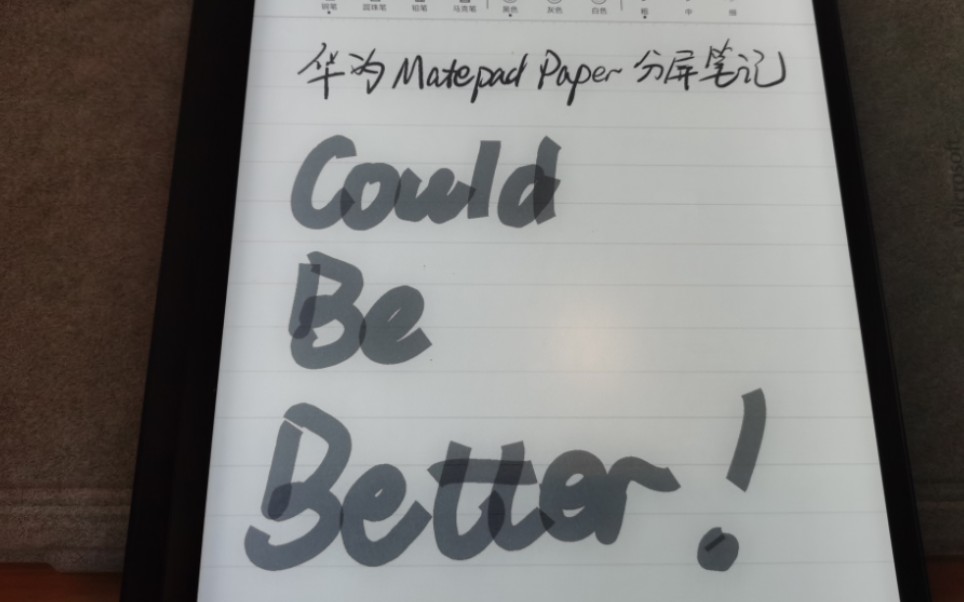 钢笔 圆珠笔 铅笔 马克笔 黑色 灰色 白色 粗 中 细
华为 Matepad Paper 分屏笔记
Could
Be
Better!